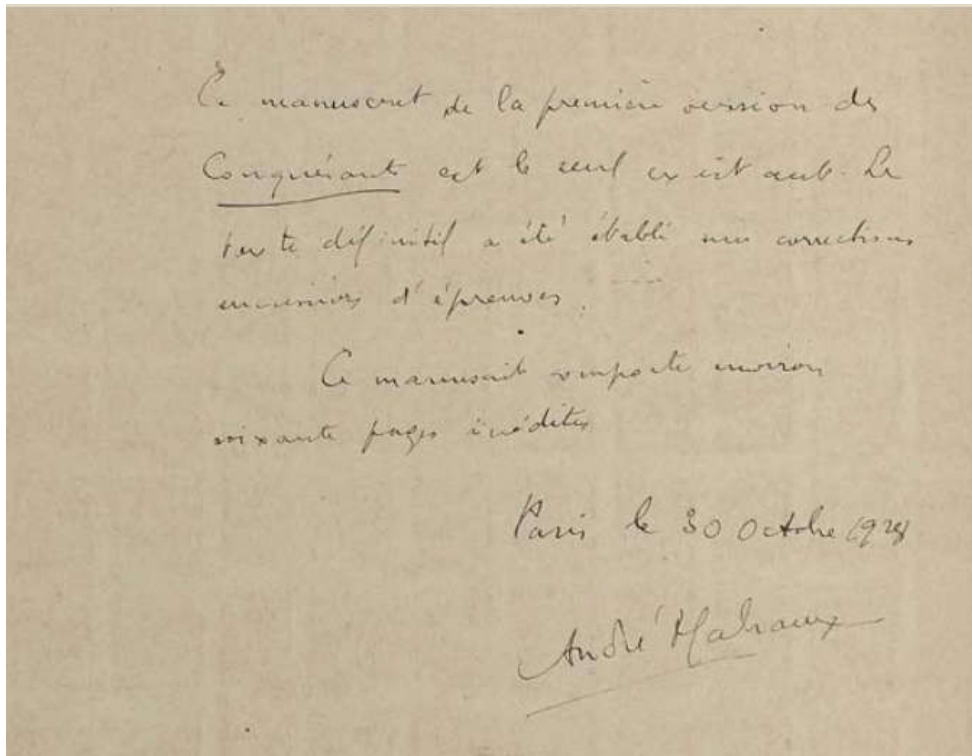 Ce manuscrit de la première version des
Conquérants est le seul existant. Le
texte définitif a été établi sur corrections
successives d'épreuves.
Ce manuscrit comporte environ
soixante pages inédites
Paris le 30 Octobre 1928
André Malraux